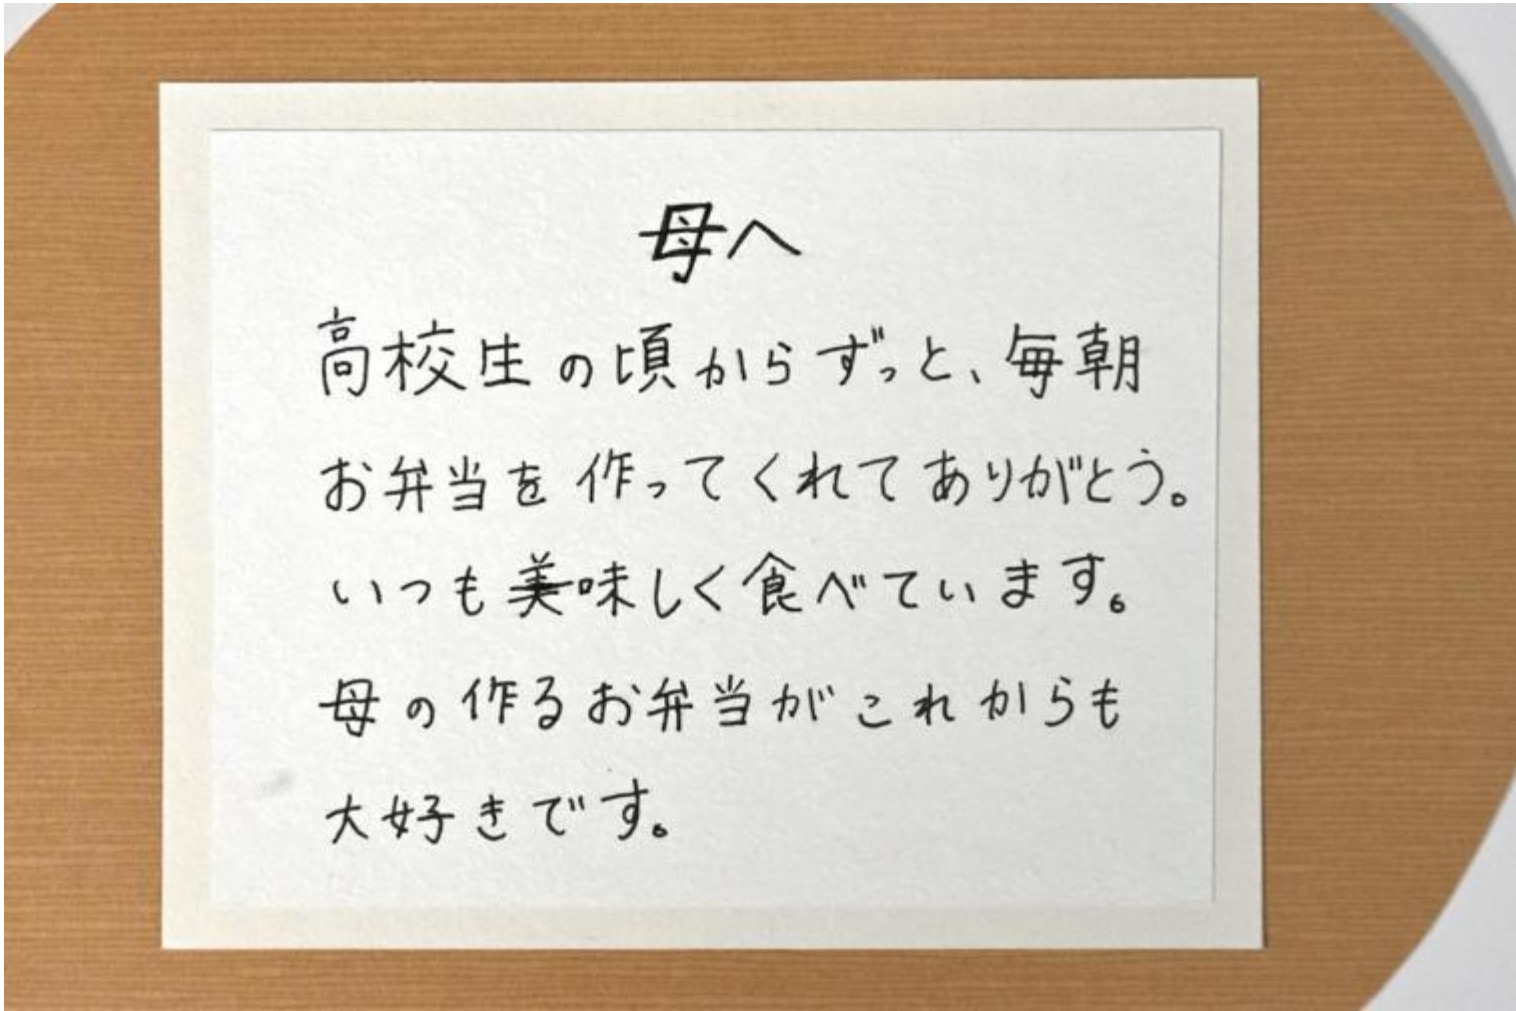 母へ
高校生の頃からずっと、毎朝
お弁当を作ってくれてありがとう。
いつも美味しく食べています。
母の作るお弁当がこれからも
大好きです。